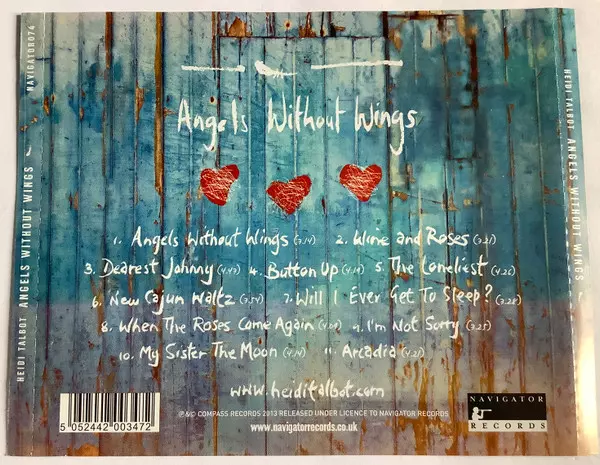 Angels Without Wings
1. Angels Without Wings (3.14) 2. Wine and Roses (3.21)
3. Dearest Johnny (4.43) 4. Button Up (4.14) 5. The Loneliest (4.26)
6. New Cajun Waltz (3.54) 7. Will I Ever Get To Sleep? (3.28)
8. When The Roses Come Again 9. I'm Not Sorry (3.25)
10. My Sister The Moon (4.14) 11. Arcadia (4.21)
www.heiditalbot.com
℗ &© COMPASS RECORDS 2013 RELEASED UNDER LICENCE TO NAVIGATOR RECORDS
www.navigatorrecords.co.uk
5 052442 003472
NAVIGATOR
RECORDS
HEIDI TALBOT ANGELS WITHOUT WINGS NAVIGATOR074
HEIDI TALBOT ANGELS WITHOUT WINGS